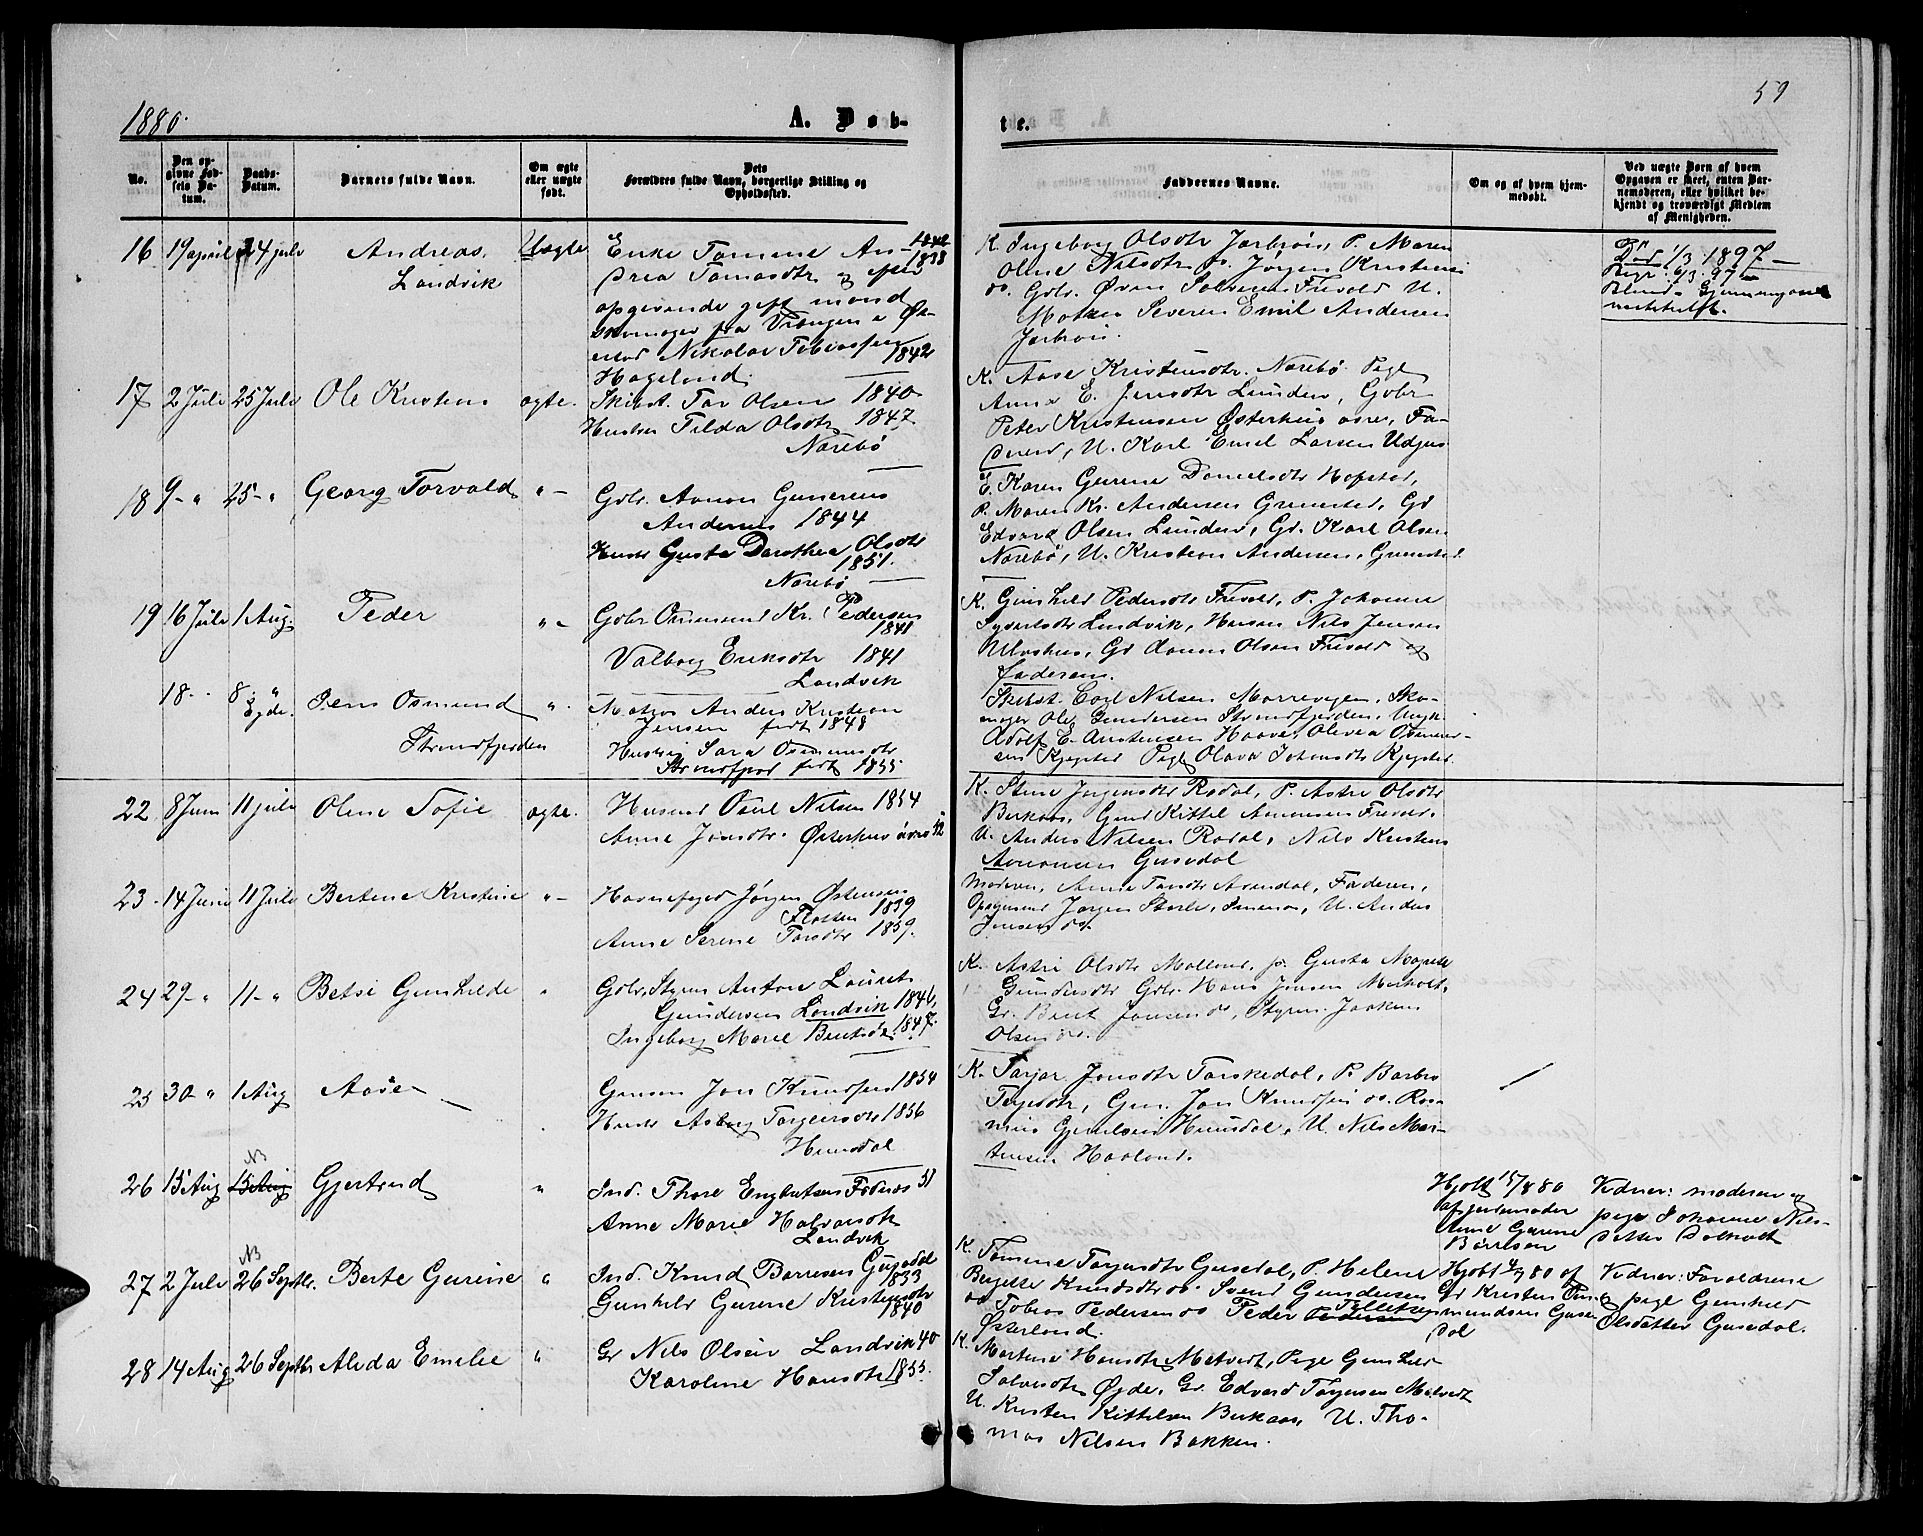 1880.
A. Døb-
te.
59
No.
Den op-
givne Fød-
sels Da-
tum.
Daabs-
Datum.
Barnets fulde Navn.
Om ægte
eller uægte
født.
Dets
Forældres fulde Navn, borgerlige Stilling og
Opholdssted.
Faddernes Navne.
Om og af hvem hjem-
medøbt.
Ved uægte Born af hvem
Opgaven er skeet, enten Bar-
nemoderen, eller hvilket be-
kjendt og troværdigt Medlem
af Menigheden.
16 19 april 24 juli Andreas. Uægte Enke Tomine An- 1838
Landvik
drea Tomasdtr og efter
opgivende gift mand
skomager fra Vrengen i Øi-
estad Nikolai Tobiassen 1842
Hageland.
K. Ingeborg Olsdtr Jortveit, P. Maren
Oline Nilsdtr do. Jørgen Kristensen
do. Gbr. Øven Salvesen Frivold U.
Matros Severin Emil Andersen
Død 1/3 1897 —
Begr. 6/3 97
17 2 Juli 25 Juli Ole Kristens ægte. Skibst. Tor Olsen 1840
Hustru Tilda Olsdtr 1847
Narebø
K. Aase Kristensdtr. Narebø. Pige
Anne E. Jensdtr Lunden, Gbr
Peter Kristensen Østerhus øvre, Fa-
deren, U. Karl Emil Larsen
18 9 - " 25 - " Georg Torvald " - Gbr. Aanon Gunerius
Andersen 1844
Hustr Gusta Dorothea Olsdtr
1851.
Narebø
E. Karen Gurine Danielsdtr Hofstad,
P. Maren Kr. Andersen Grimstad, Gd
Edvard Olsen Lunden, Gd. Karl Olsen
Narebø, U. Kristian Andersen, Grimstad.
19 16 Juli 1 Aug. Peder " - Gbr Osmund Kr. Pedersen
1841
Valborg Eriksdtr 1841
Landvik
K. Gunhild Pedersdtr Frivold, P. Johanne
Syvertsdtr Landvik, Husm Nils Jensen
Gd Aanon Olsen Frivold og
faderen.
18 8 " Jens Osmund " Matros Anders Kristian
Egde.
Strandfjorden
Jensen født 1848
Hustru Sara Osmundsdtr
Strandfjord født 1855.
Skibst. Carl Nilsen Morrevigen, Sko-
mager Ole Gundersen Strandfjorden, Ungk.
Adolf E. Austensen Haave, Olivia
Pige Olava Johansdtr
22 8 Juni 11 juli Oline Tofie ægte. Husmd Osul Nilsen 1854
Anne Jonsdtr. Østerhus øvre 52
K. Stine Jørgensdtr Rødal, P. Astri Olsdtr
Birkaas, Gmd Kittil Frivold,
U. Anders Nilsen Rødal, Nils Kristens
Aanonsen Gusedal
23 - 14 Juni 11 Juli Bertine Kristine " - Havnefoged Jørgen Østensen
1839
Anne Serine Torsdtr 1859.
Moderen, Anne Torsdtr Arendal, Faderen,
Jørgen U. Anders
Jensen do.
24 29 - " 11 - " Betsi Gunhilde " Gbr, Styrm Anton Laurits
Gundersen Landvik 1846,
Ingeborg Marie Bentsdtr 1847.
K. Astri Olsdtr Molland, p. Gusta Magrete
Gundersdtr Gbr. Hans Jensen
Gr. Bent Jansen do, Styrm. Joakim
Olsen do.
25 30 " 1 Aug Aase - Gman Jon Knudsen 1854
Hustr Asborg Torgersdtr 1856
Hunsdal
K. Tarjer Jonsdtr Torskedal, P. Barbro
Terjesdtr, Gm. Jon Knudsen do.
Hunsdal, U. Nils Mar-
tinsen Haaland.
26 15 Aug NB 15 Aug Gjertrud " Ind. Thore Englutsen 51
Anne Marie Halvorsdtr
Landvik
Hjdbt 15/8 80
af jordemoder
Anne Gurine
Børresen
Vidner: moderen og
pige Johanne Nils-
datter
27 2 Juli NB 26 Septbr. Berte Gurine " Ind. Knud Børresen Gusedal
1833
Gunhild Gurine Kristensdtr
1840
K. Tomine Torgersdtr Gusedal, P. Helene
Birgitte Knudsdtr do. Svend Gundersen
do Tobias Pedersen do Peder Pedersen Tellefsen
Østerland.
Hjdbt 4/7 80 af
Gd Kristen Om-
mundsen Guse-
dal
Vidner: Forældrene
og pige Gunhild
Olsdatter Gusedal.
28 14 Aug 26 Septbr Alida Emilie " Gr Nils Olsen Landvik 40
Karoline Hansdtr 1855.
K. Martine Hansdtr Molvedt, Pige Gunhild
Salvesdtr Øyde, Gr. Edvard Torgersen Molvedt
U. Kristen Kittelsen Birkaas, U. Tho-
mas Nilsen Bakken.